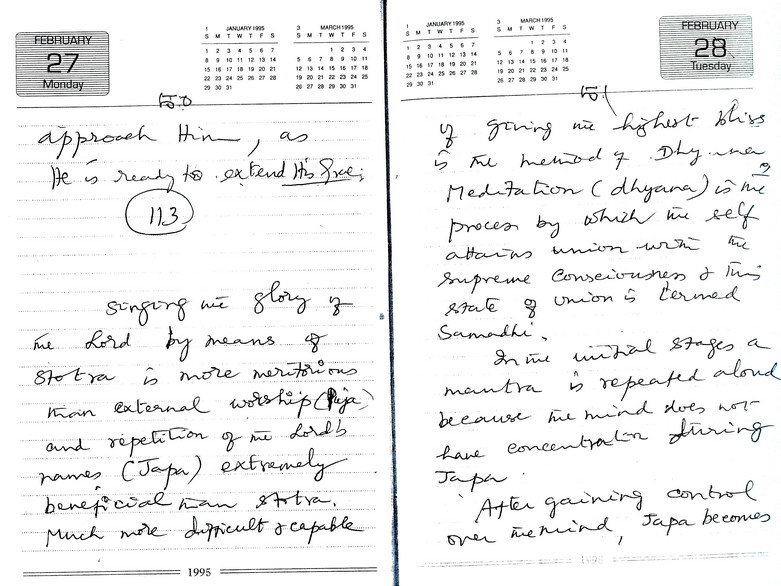 FEBRUARY
27
Monday
1 JANUARY 1995
S M T W T F S
1 2 3 4 5 6 7
8 9 10 11 12 13 14
15 16 17 18 19 20 21
22 23 24 25 26 27 28
29 30 31
3 MARCH 1995
S M T W T F S
1 2 3 4
5 6 7 8 9 10 11
12 13 14 15 16 17 18
19 20 21 22 23 24 25
26 27 28 29 30 31
approach Him, as
He is ready to extend His
113
Singing the glory of
the Lord by means of
stotra is more meritorious
than external worship (Puja)
and repetition of the Lord's
names (Japa) extremely
beneficial than stotra.
Much more difficult & capable
1995
1 JANUARY 1995
S M T W T F S
1 2 3 4 5 6 7
8 9 10 11 12 13 14
15 16 17 18 19 20 21
22 23 24 25 26 27 28
29 30 31
3 MARCH 1995
S M T W T F S
1 2 3 4
5 6 7 8 9 10 11
12 13 14 15 16 17 18
19 20 21 22 23 24 25
26 27 28 29 30 31
FEBRUARY
28
Tuesday
of giving the highest bliss
is the method of
Meditation (dhyana) is the
process by which the self
attains union with the
supreme consciousness & this
state of union is termed
Samadhi.
In the initial stages a
mantra is repeated aloud
because the mind does not
have concentration during
Japa.
After gaining control
over the mind, Japa becomes
1995